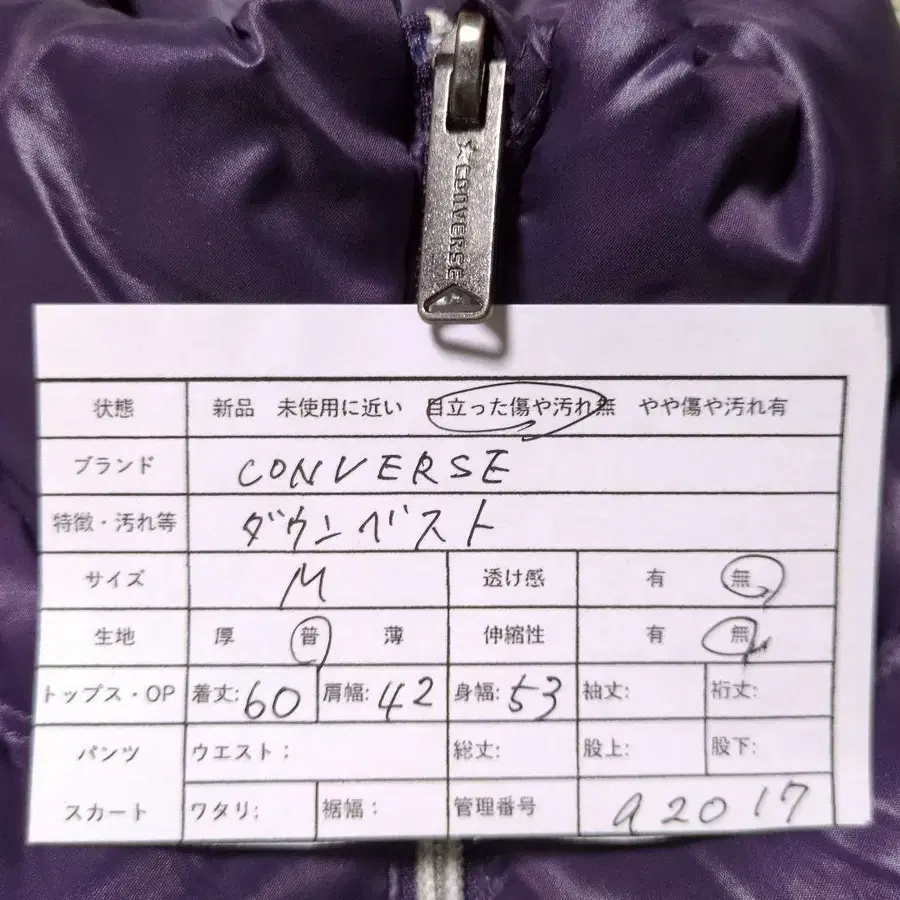 CONVERSE
状態 新品 未使用に近い 目立った傷や汚れ無 やや傷や汚れ有
ブランド CONVERSE
特徴・汚れ等 ダウンベスト
サイズ M 透け感 有 無
生地 厚 普 薄 伸縮性 有 無
トップス・OP 着丈: 60 肩幅: 42 身幅: 53 袖丈: 裄丈:
パンツ ウエスト: 総丈: 股上: 股下:
スカート ワタリ; 裾幅: 管理番号 a2017